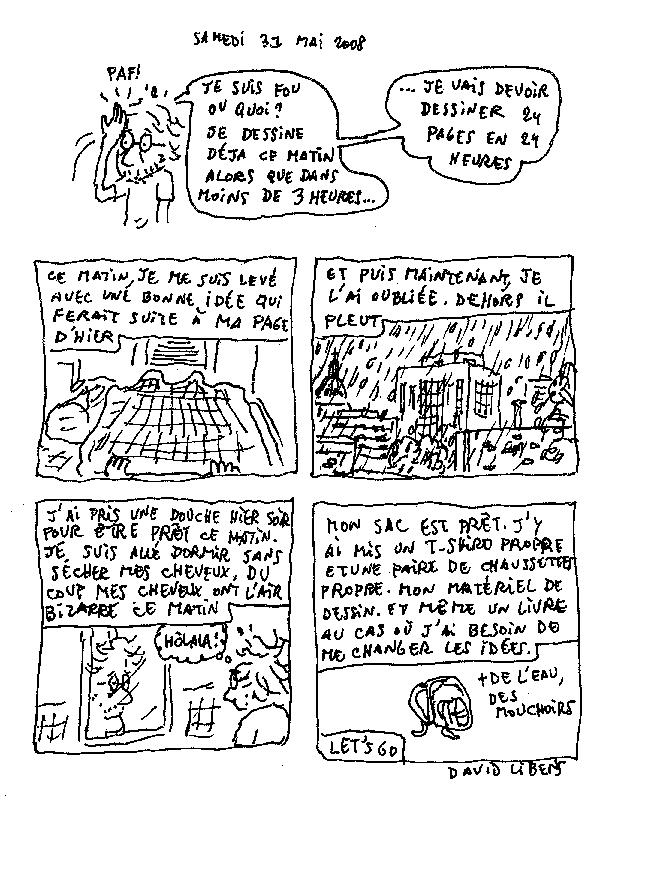 SAMEDI 31 MAI 2008
PAF!
JE SUIS FOU
OU QUOI?
JE DESSINE
DÉJA CE MATIN
ALORS QUE DANS
MOINS DE 3 HEURES...
... JE VAIS DEVOIR
DESSINER 24
PAGES EN 24
HEURES
CE MATIN, JE ME SUIS LEVÉ
AVEC UNE BONNE IDÉE QUI
FERAIT SUITE À MA PAGE
D'HIER
ET PUIS MAINTENANT, JE
L'AI OUBLIÉE. DEHORS IL
PLEUT
J'AI PRIS UNE DOUCHE HIER SOIR
POUR ÊTRE PRÊT CE MATIN.
JE SUIS ALLÉ DORMIR SANS
SÉCHER MES CHEVEUX, DU
COUP MES CHEVEUX ONT L'AIR
BIZARRE CE MATIN
HÒLALA!
MON SAC EST PRÊT. J'Y
AI MIS UN T-SHIRD PROPRE
ET UNE PAIRE DE CHAUSSETTES
PROPRE. MON MATÉRIEL DE
DESSIN. ET MÊME UN LIVRE
AU CAS OÙ J'AI BESOIN DE
ME CHANGER LES IDÉES.
+ DE L'EAU,
DES
MOUCHOIRS
LET'S GO
DAVID LIBENS